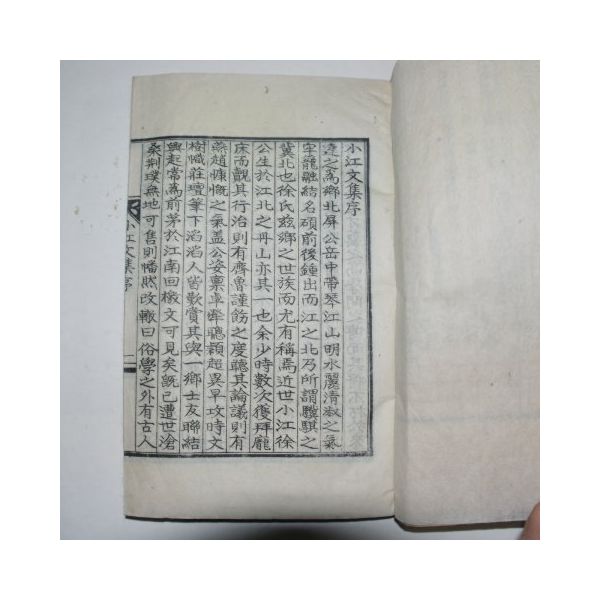 小江文集序
達之爲鄉北屏公岳中帶琴江山明水麗淸淑之氣
窂籠融結名碩前後鍾出而江之北乃所謂驥騏之
冀北也徐氏玆鄉之世族而尤有稱焉近世小江徐
公生於江北之丹山亦其一也余少時數次獲拜龐
床而觀其行治則有齊魯謹飭之度聽其論議則有
燕趙慷慨之氣盖公姿禀卓犖聰穎超異早攻時文
樹幟莊壇筆下滔滔人皆歎賞其與一鄉士友聯結
興起常爲前茅於江南回檄文可見矣旣已遭世滄
桑荆璞無地可售則幡然改轍曰俗學之外有古人
小江文集序